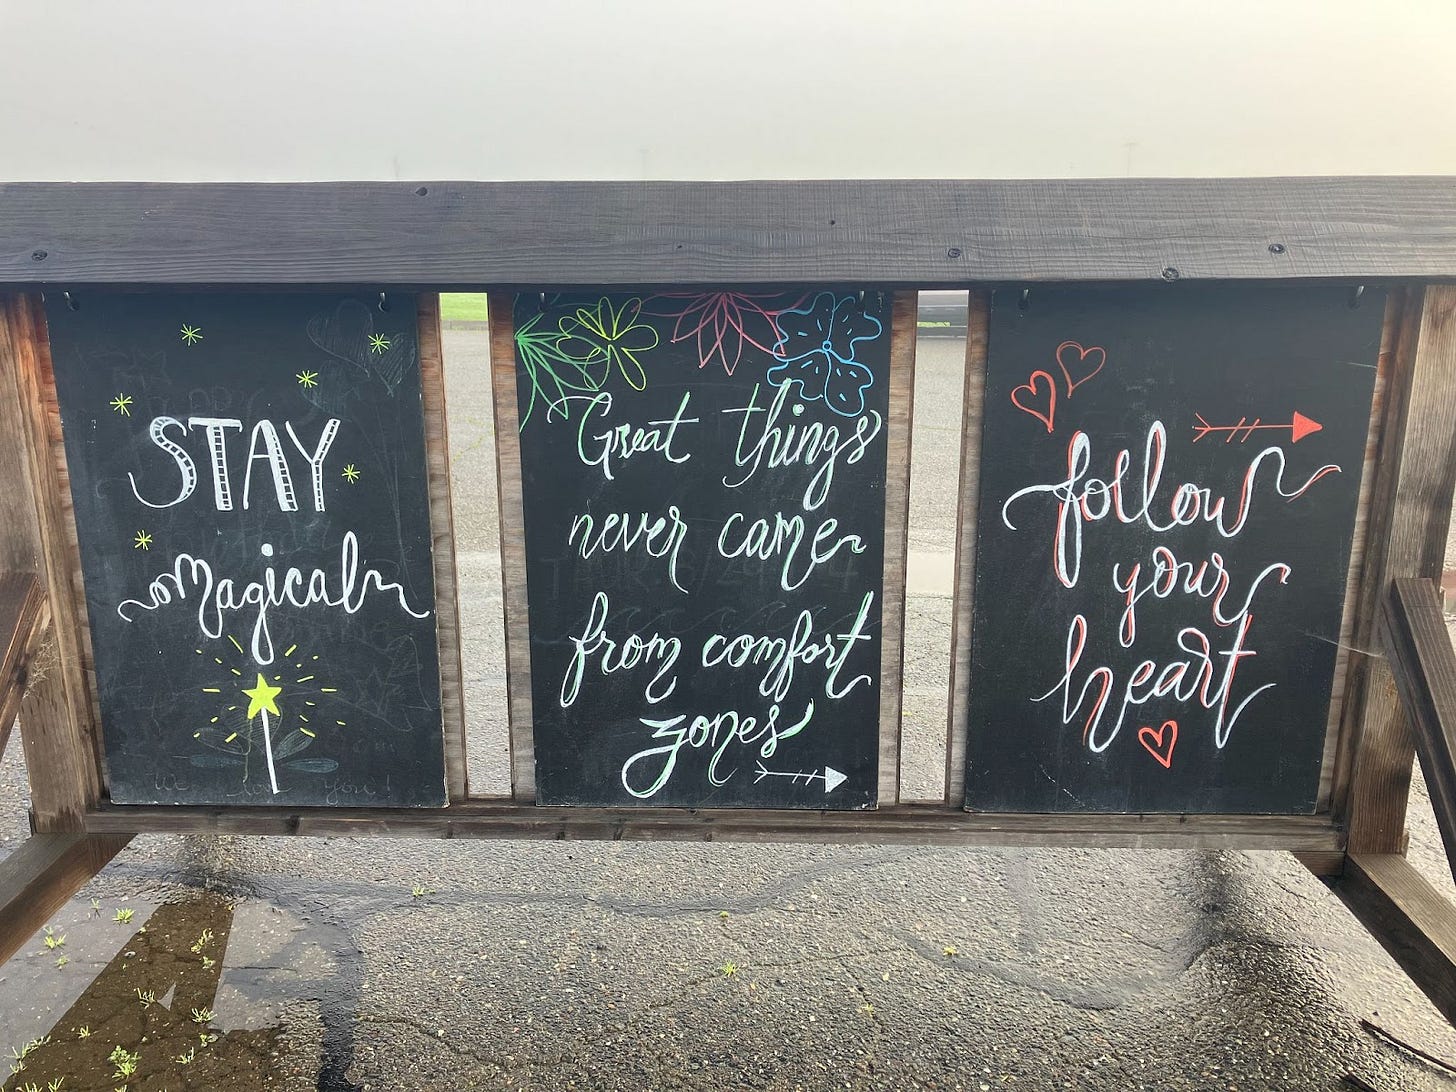 STAY
magical
We love you!
Great things
never came
from comfort
zones
follow
your
heart